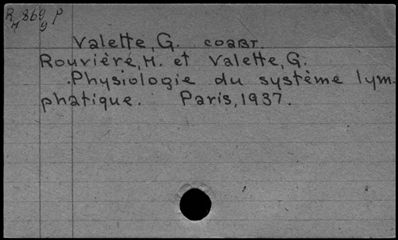 R 869 p
Valette, G. coавт.
Rouvière, H. et Valette, G.
Physiologie du système lym-
phatique. Paris, 1937.